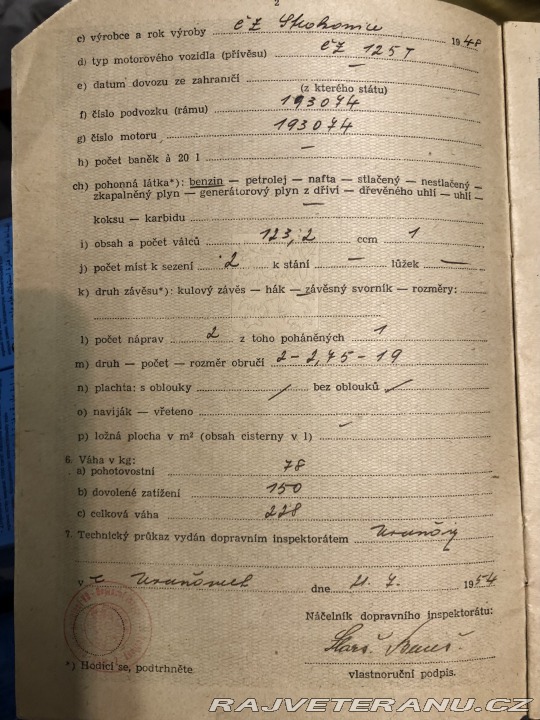 2
c) výrobce a rok výroby ČZ Strakonice 1948
d) typ motorového vozidla (přívěsu) ČZ 125 T
e) datum dovozu ze zahraničí —
(z kterého státu)
f) číslo podvozku (rámu) 193074
g) číslo motoru 193074
h) počet baněk à 20 l —
ch) pohonná látka*): benzin — petrolej — nafta — stlačený — nestlačený —
zkapalněný plyn — generátorový plyn z dříví — dřevěného uhlí — uhlí —
koksu — karbidu —
i) obsah a počet válců 123,2 ccm 1
j) počet míst k sezení 2 k stání — lůžek —
k) druh závěsu*): kulový závěs — hák — závěsný svorník — rozměry:
l) počet náprav 2 z toho poháněných 1
m) druh — počet — rozměr obručí 2 - 2,75 - 19
n) plachta: s oblouky / bez oblouků /
o) naviják — vřeteno
p) ložná plocha v m² (obsah cisterny v l) —
6. Váha v kg:
a) pohotovostní 78
b) dovolené zatížení 150
c) celková váha 228
7. Technický průkaz vydán dopravním inspektorátem
v dne 21. 7. 1954
Náčelník dopravního inspektorátu:
*) Hodící se, podtrhněte.
vlastnoruční podpis.
RAJVETERANU.CZ